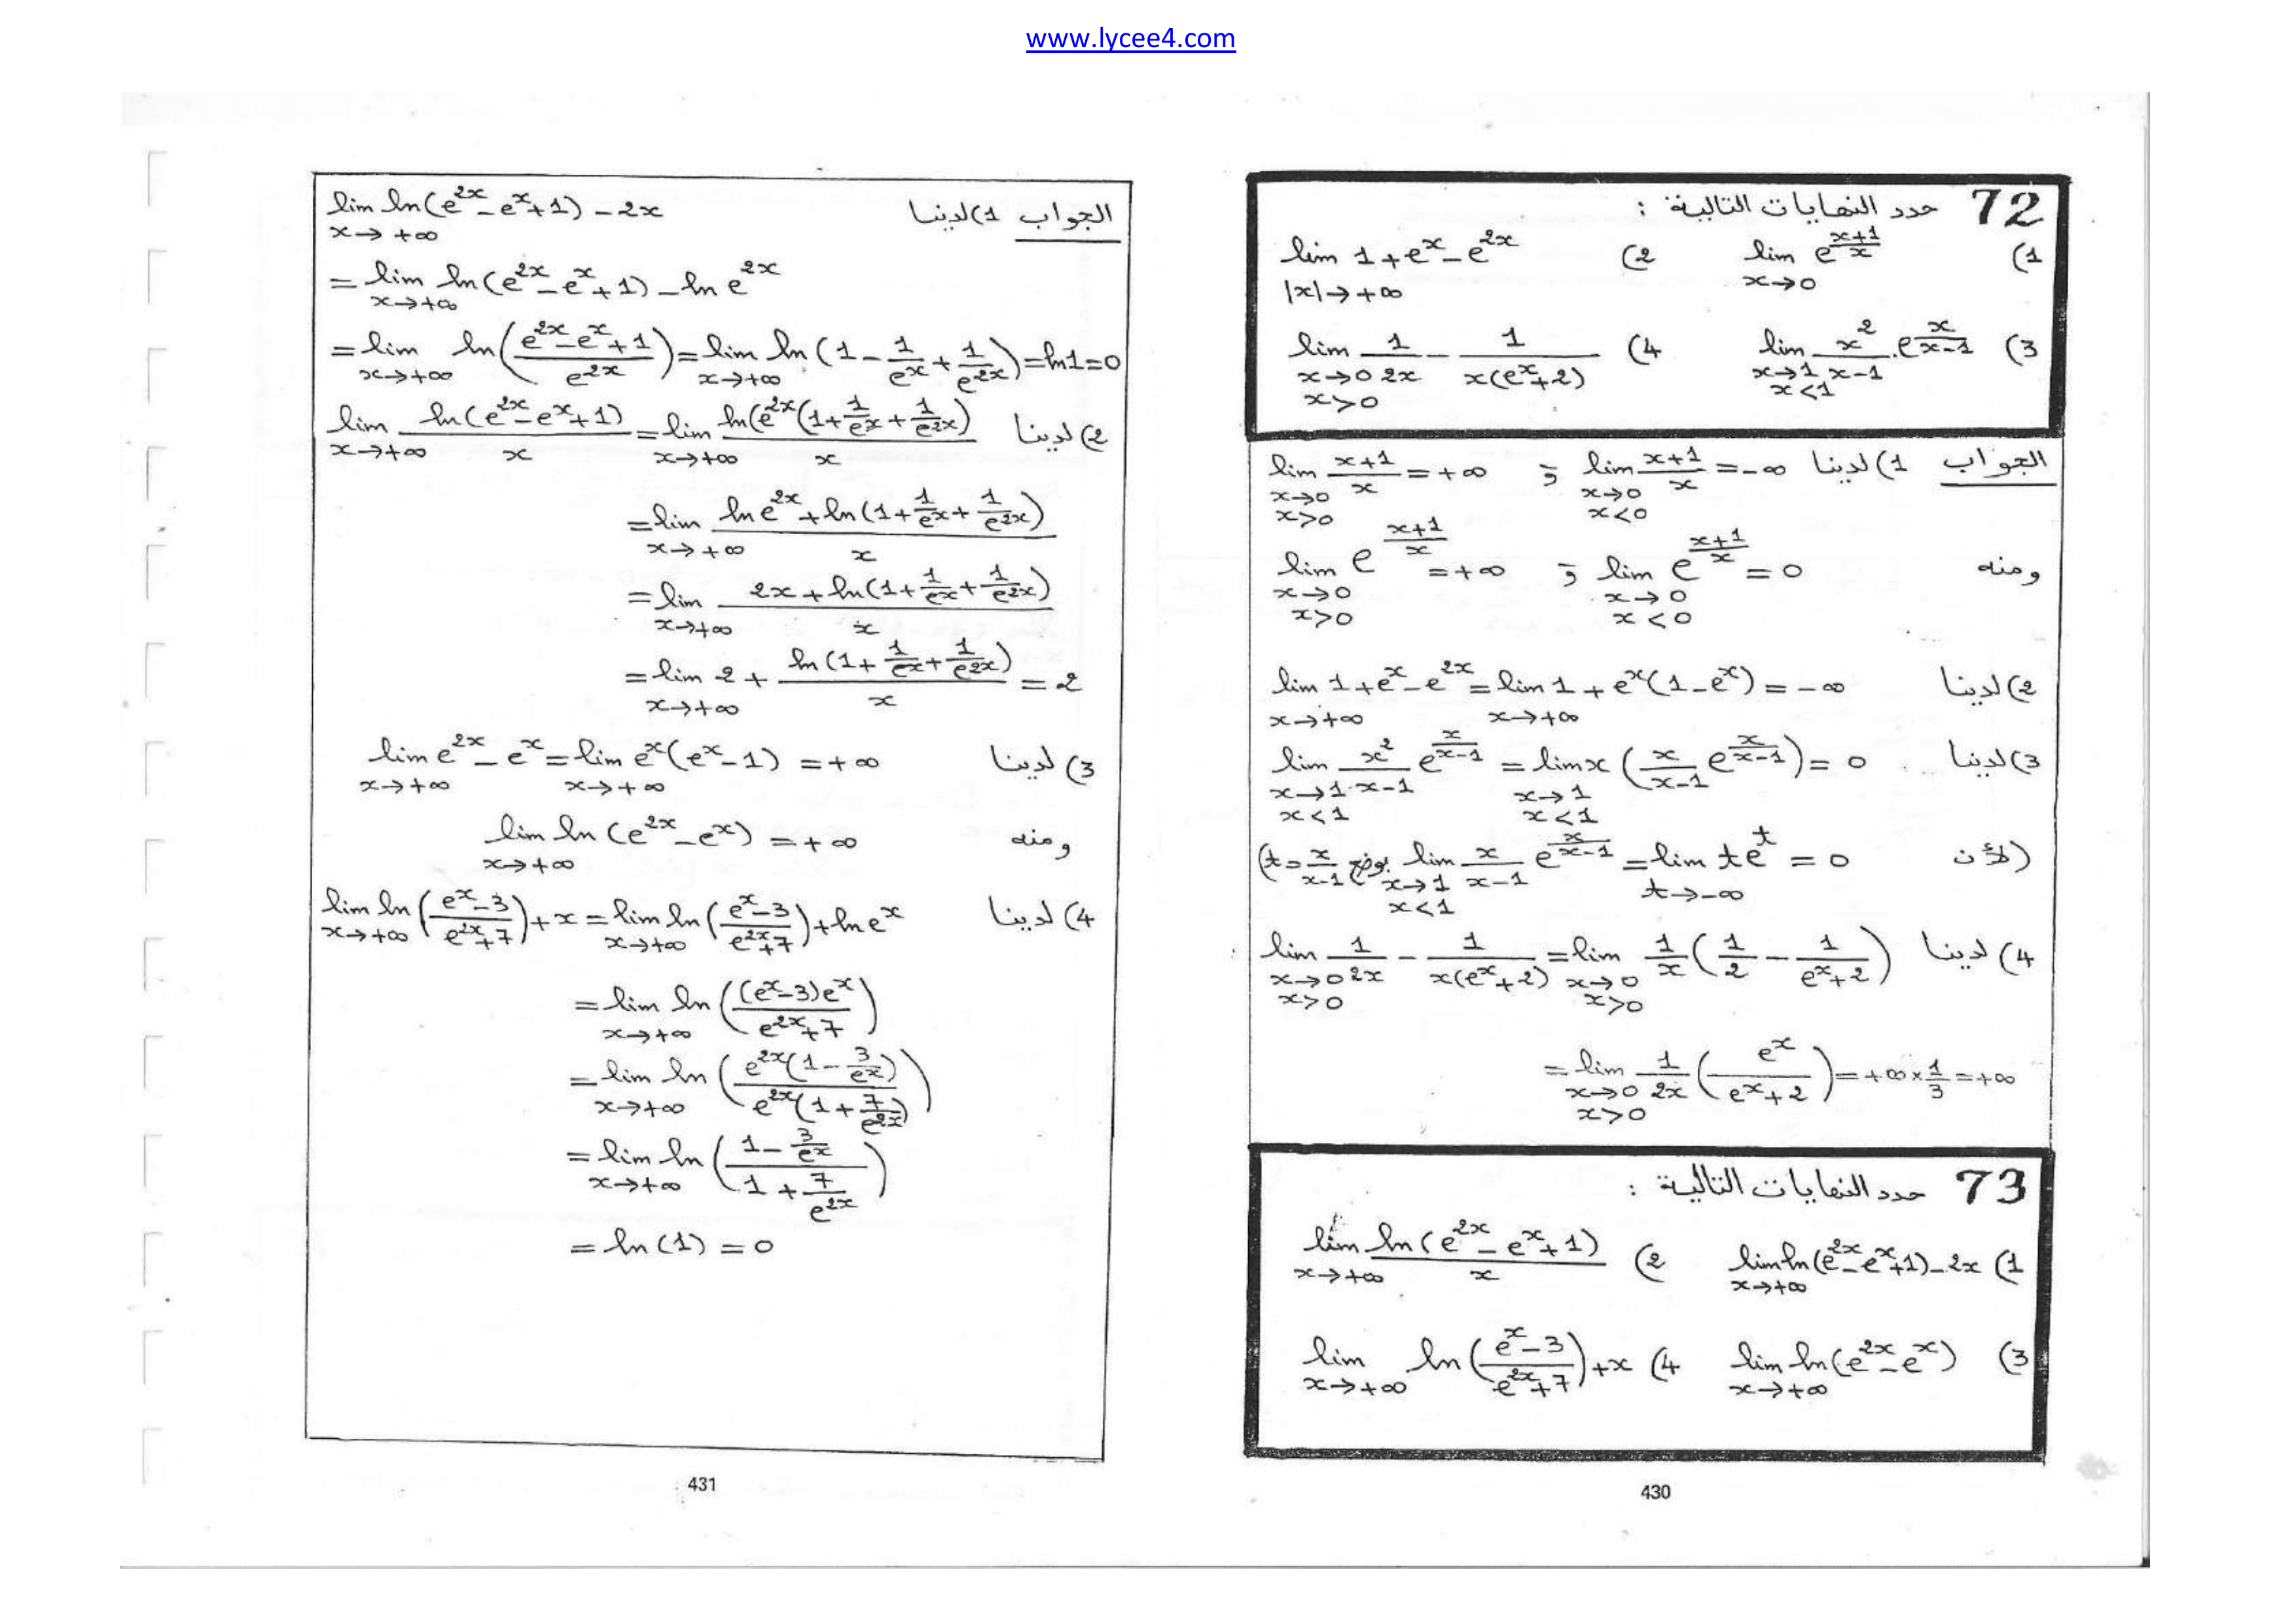 www.lycee4.com
72 حدد النهايات التالية :
1) lim_{x→0} e^{(x+1)/x}   2) lim_{|x|→+∞} 1 + e^x - e^{2x}
3) lim_{x→1, x<1} x²/(x-1) . e^{x/(x-1)}   4) lim_{x→0, x>0} 1/(2x) - 1/(x(e^x+2))
الجواب 1) لدينا lim_{x→0, x<0} (x+1)/x = -∞ و lim_{x→0, x>0} (x+1)/x = +∞
ومنه lim_{x→0, x<0} e^{(x+1)/x} = 0 و lim_{x→0, x>0} e^{(x+1)/x} = +∞
2) لدينا lim_{x→+∞} 1 + e^x - e^{2x} = lim_{x→+∞} 1 + e^x(1 - e^x) = -∞
3) لدينا lim_{x→1, x<1} x²/(x-1) e^{x/(x-1)} = lim_{x→1, x<1} x (x/(x-1) e^{x/(x-1)}) = 0
(لأن lim_{x→1, x<1} x/(x-1) e^{x/(x-1)} = lim_{t→-∞} t e^t = 0 بوضع t = x/(x-1))
4) لدينا lim_{x→0, x>0} 1/(2x) - 1/(x(e^x+2)) = lim_{x→0, x>0} 1/x (1/2 - 1/(e^x+2))
= lim_{x→0, x>0} 1/(2x) (e^x/(e^x+2)) = +∞ × 1/3 = +∞
73 حدد النهايات التالية :
1) lim_{x→+∞} ln(e^{2x} - e^x + 1) - 2x   2) lim_{x→+∞} ln(e^{2x} - e^x + 1)/x
3) lim_{x→+∞} ln(e^{2x} - e^x)   4) lim_{x→+∞} ln((e^x - 3)/(e^{2x} + 7)) + x
430
الجواب 1) لدينا lim_{x→+∞} ln(e^{2x} - e^x + 1) - 2x
= lim_{x→+∞} ln(e^{2x} - e^x + 1) - ln e^{2x}
= lim_{x→+∞} ln((e^{2x} - e^x + 1)/e^{2x}) = lim_{x→+∞} ln(1 - 1/e^x + 1/e^{2x}) = ln1 = 0
2) لدينا lim_{x→+∞} ln(e^{2x} - e^x + 1)/x = lim_{x→+∞} ln(e^{2x}(1 + 1/e^x + 1/e^{2x}))/x
= lim_{x→+∞} (ln e^{2x} + ln(1 + 1/e^x + 1/e^{2x}))/x
= lim_{x→+∞} (2x + ln(1 + 1/e^x + 1/e^{2x}))/x
= lim_{x→+∞} 2 + ln(1 + 1/e^x + 1/e^{2x})/x = 2
3) لدينا lim_{x→+∞} e^{2x} - e^x = lim_{x→+∞} e^x(e^x - 1) = +∞
ومنه lim_{x→+∞} ln(e^{2x} - e^x) = +∞
4) لدينا lim_{x→+∞} ln((e^x - 3)/(e^{2x} + 7)) + x = lim_{x→+∞} ln((e^x - 3)/(e^{2x} + 7)) + ln e^x
= lim_{x→+∞} ln((e^x - 3)e^x/(e^{2x} + 7))
= lim_{x→+∞} ln(e^{2x}(1 - 3/e^x)/(e^{2x}(1 + 7/e^{2x})))
= lim_{x→+∞} ln((1 - 3/e^x)/(1 + 7/e^{2x}))
= ln(1) = 0
431